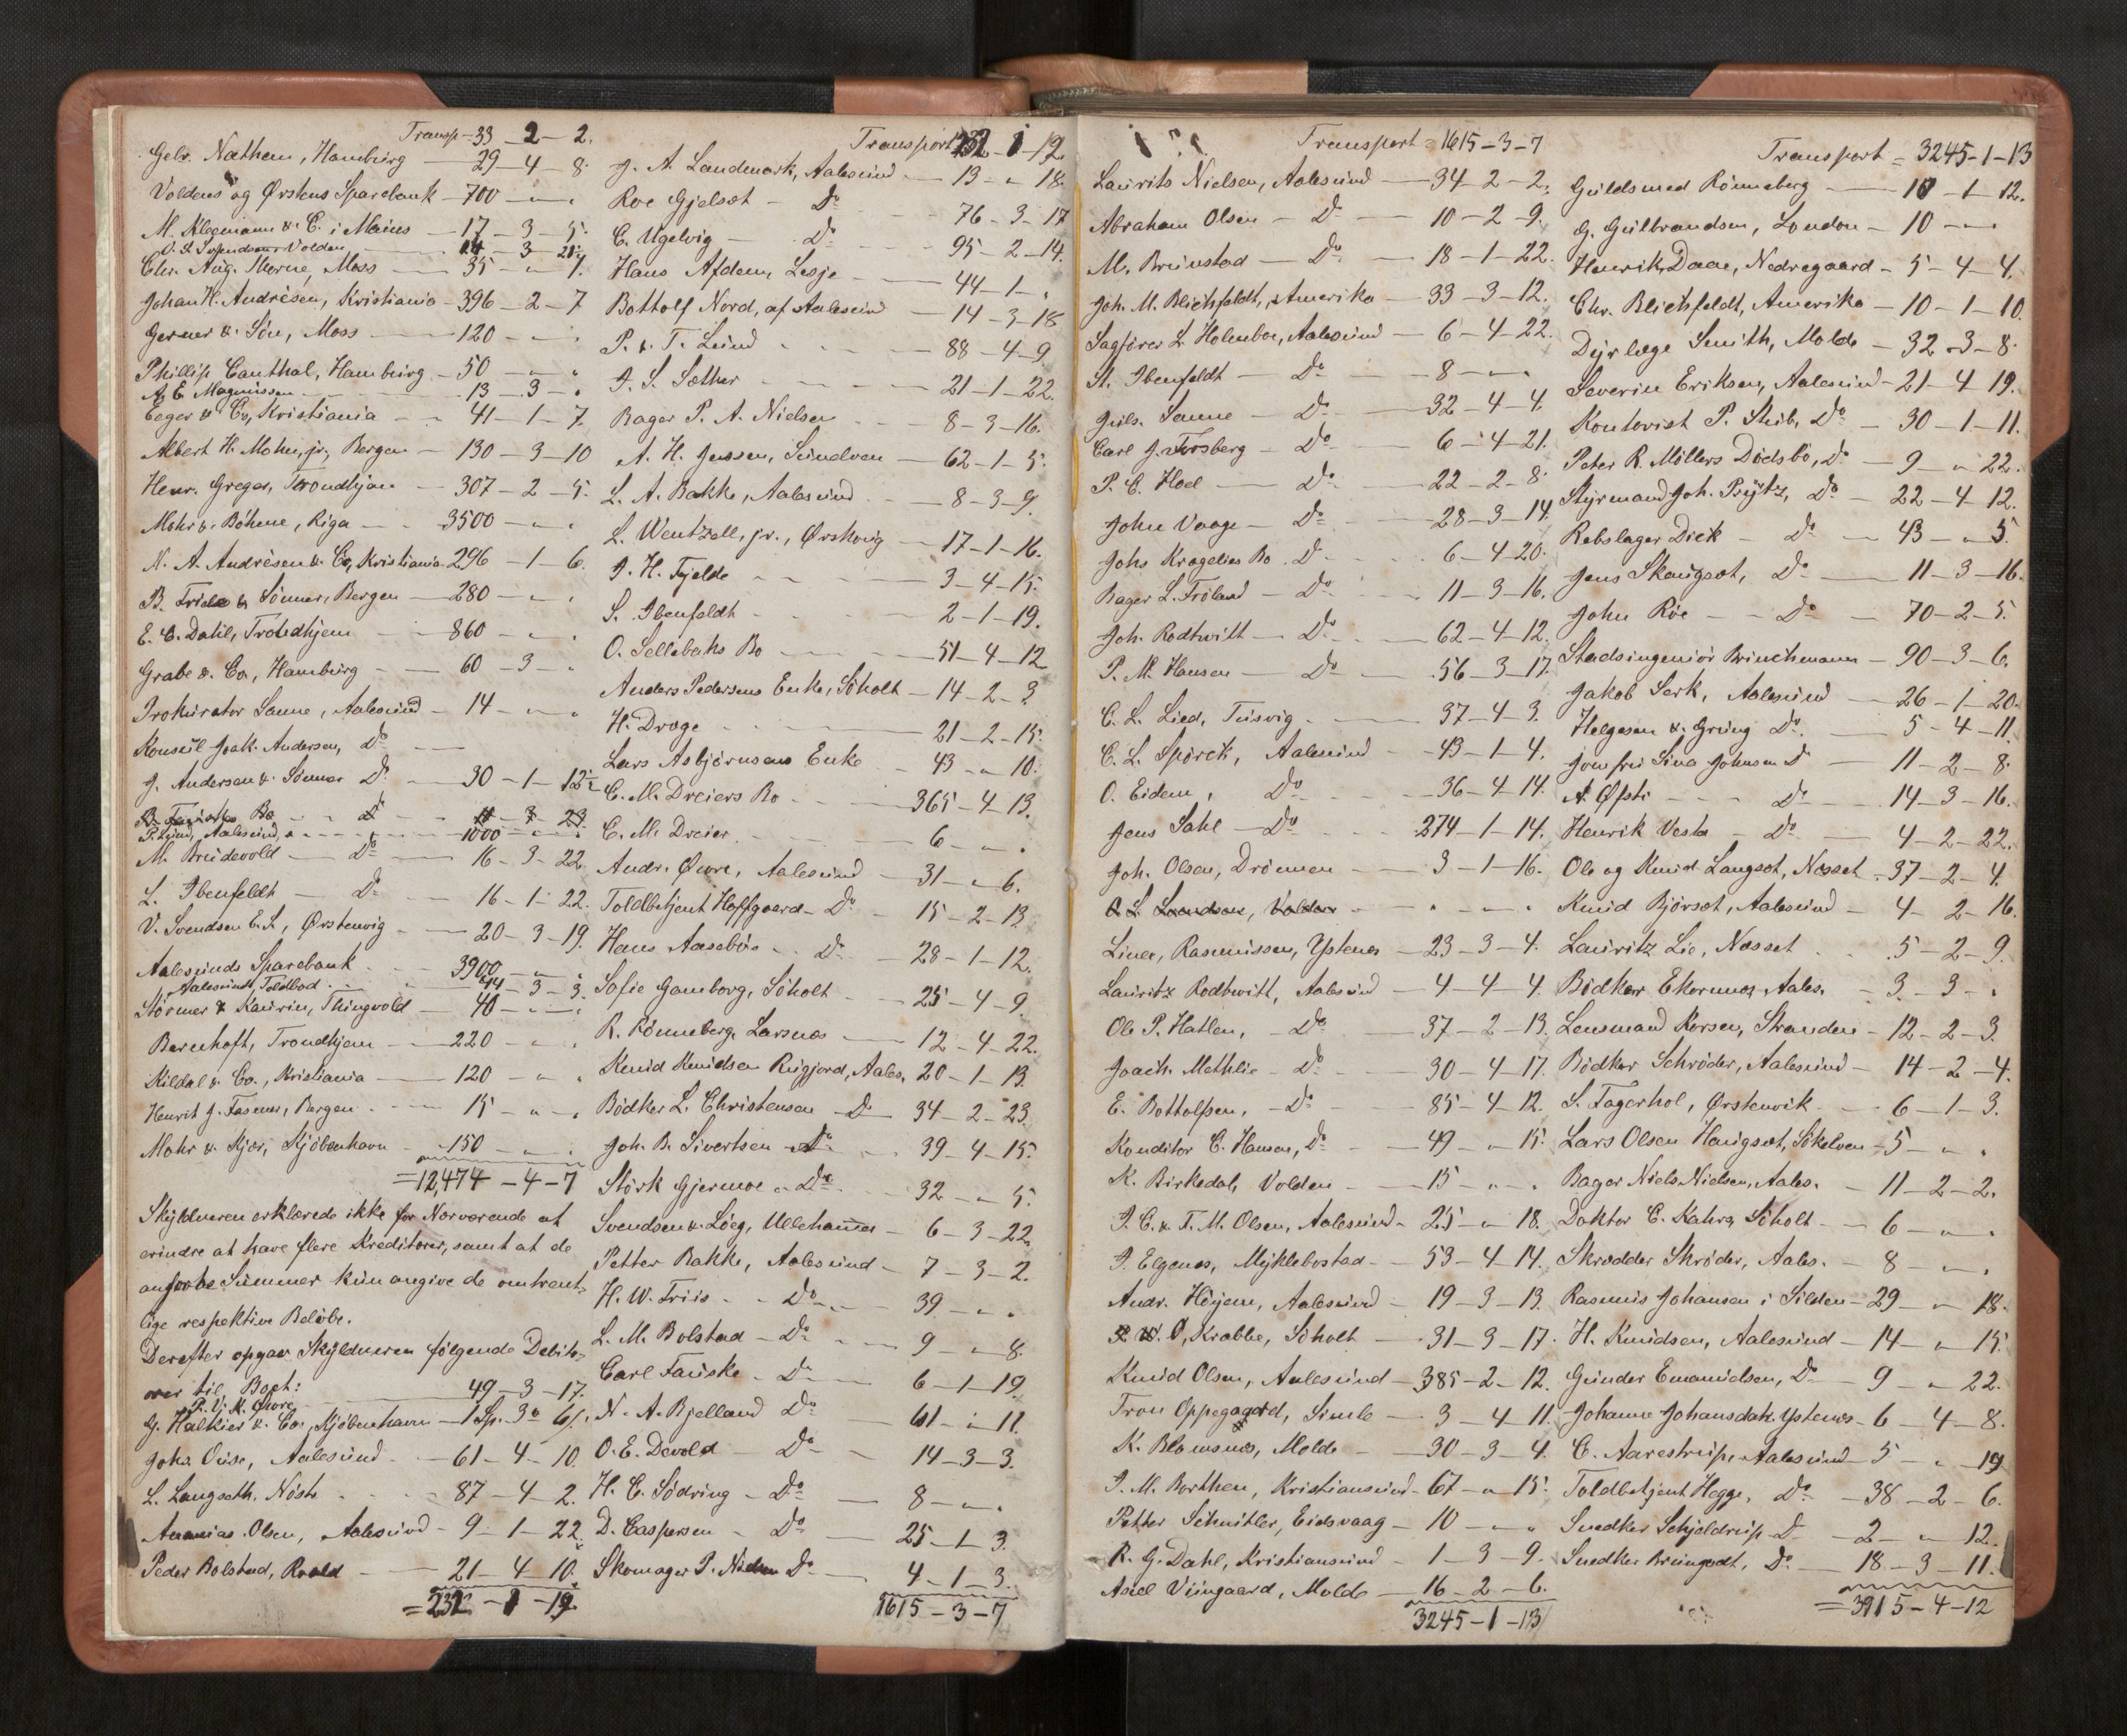 Transp. - 33 - 2 - 2.
Gebr. Nathem, Hamburg - 29 - 4 - 8.
Voldens og Ørstens Sparebank - 700 - " - "
M. Klegmann & C. i Mainz - 17 - 3 - 5.
Volden - 14 - 3 - 21.
Chr. Aug. Thorne, Moss - 35 - " - 1.
Johan H. Andresen, Kristiania - 396 - 2 - 7
Gerner & Søn, Moss - 120 - " - "
Phillip Canthal, Hamburg - 50 - " - "
A. E. Magnussen - 13 - 3 - "
Eeger & Co, Kristiania - 41 - 1 - 7.
Albert H. Mohn, jr, Bergen - 130 - 3 - 10
Henr. Greger, Trondhjem - 307 - 2 - 5.
Mohr & Böhme, Riga - 3500 - " - "
N. A. Andrèsen & Co, Kristiania - 296 - 1 - 6.
B. Friele & Sønner, Bergen - 280 - " - "
E. C. Dahl, Trondhjem - 860 - " - "
Grabe & Co, Hamburg - 60 - 3 - "
Prokurator Sanne, Aalesund - 14 - " - "
Konsul Joak. Andersen, Do
J. Andersen & Sønner Do - 30 - 1 - 12½
Bo - Do - 11 - 3 - 23.
P. Lund, Aalesund - 1000 - " - "
M. Breidevold - Do - 16 - 3 - 22
L. Ibenfeldt - Do - 16 - 1 - 22.
V. Svendsen E. S., Ørstenvig - 20 - 3 - 19.
Aalesunds Sparebank - 3900 - " - "
Aalesunds Toldbod - 44 - 3 - 3.
Størmer & Kaurin, Thingvold - 40 - " - "
Bernhoft, Trondhjem - 220 - " - "
Kildal & Co., Kristiania - 120 - " - "
Henrik J. Fasmer, Bergen - 15 - " - "
Mohr & Kjær, Kjøbenhavn - 150 - " - "
= 12,474 - 4 - 7
Skyldneren erklærede ikke for Nærværende at
erindre at have flere Kreditorer, samt at de
anførte Summer kun angive de omtrent-
lige respektive Beløbe.
Derefter opgav Skyldneren følgende Debito-
rer til Boet:
P. V. K. Øwre - 49 - 3 - 17.
G. Halkier & Co., Kjøbenhavn - 1 Sp. 3 " 6 ß.
Johs. Ouse, Aalesund - 61 - 4 - 10.
L. Langseth, Nöste - 87 - 4 - 2.
Ananias Olsen, Aalesund - 9 - 1 - 22
Peder Bolstad, Roald - 21 - 4 - 10.
= 232 - 1 - 19
Transport 232 - 1 - 19
J. A. Landmark, Aalesund - 13 - " - 18.
Roe Gjelset - Do - 76 - 3 - 17
C. Ugelvig - Do - 95 - 2 - 14.
Hans Afdem, Lesje - 44 - 1 - "
Bottolf Nord, af Aalesund - 14 - 3 - 18
P. & T. Lund - 88 - 4 - 9
J. S. Sæther - 21 - 1 - 22.
Bager P. A. Nielsen - 8 - 3 - 16.
A. H. Jessen, Sundven - 62 - 1 - 5.
L. A. Bakke, Aalesund - 8 - 3 - 9.
L. Wentzell, jr., Ørskoug - 17 - 1 - 16.
J. H. Fjelde - 3 - 4 - 15.
S. Ibenfeldt - 2 - 1 - 19.
O. Sellebaks Bo - 51 - 4 - 12
Anders Pedersens Enke, Söholt - 14 - 2 - 3
H. Drage - 21 - 2 - 15.
Lars Asbjørnsens Enke - 43 - " - 10.
C. M. Dreiers Bo - 365 - 4 - 13.
C. M. Dreier - 6 - " - "
Andr. Øwre, Aalesund - 31 - " - 6.
Toldbetjent Hoffgaard - Do - 15 - 2 - 13.
Hans Aasebøe - Do - 28 - 1 - 12.
Sofie Gamborg, Söholt - 25 - 4 - 9.
R. Rönneberg, Larsnes - 12 - 4 - 22.
Knud Knudsen Rugjord, Aales. 20 - 1 - 13.
Bödker L. Christensen - Do - 34 - 2 - 23.
Joh. B. Sivertsen - Do - 39 - 4 - 15.
Störk Gjermoe - Do - 32 - " - 5.
Svendsen & Löeg, Ullehamar - 6 - 3 - 22.
Petter Bakke, Aalesund - 7 - 3 - 2.
H. W. Friis - Do - 39 - " - "
L. M. Bolstad - Do - 9 - " - 8.
Carl Fauske - Do - 6 - 1 - 19.
N. A. Bjelland Do - 61 - " - 11.
O. E. Devold - Do - 14 - 3 - 3.
H. C. Södring - Do - 8 - " - "
D. Caspersen - Do - 25 - 1 - 3.
Skomager P. Nielsen Do - 4 - 1 - 3.
1615 - 3 - 7
Transport = 1615 - 3 - 7
Laurits Nielsen, Aalesund - 34 - 2 - 2.
Abraham Olsen - Do - 10 - 2 - 9.
M. Breivstad - Do - 18 - 1 - 22.
Joh. M. Blichfeldt, Amerika - 33 - 3 - 12.
Sagfører L. Holmboe, Aalesund - 6 - 4 - 22.
A. Ibenfeldt - Do - 8 - " - "
Juls. Sanne - Do - 32 - 4 - 4.
Carl J. Forsberg - Do - 6 - 4 - 21.
P. C. Hoel - Do - 22 - 2 - 8.
John Vaage - Do - 28 - 3 - 14.
Johs Kragelies Bo Do - 6 - 4 - 20.
Bager L. Fröland - Do - 11 - 3 - 16.
Joh. Rodtwitt - Do - 62 - 4 - 12.
P. M. Hansen - Do - 56 - 3 - 17.
C. L. Lied, Tusvig - 37 - 4 - 3.
C. L. Spörck, Aalesund - 43 - 1 - 4.
O. Eidem, Do - 36 - 4 - 14.
Jens Sahl - Do - 274 - 1 - 14.
Joh. Olsen, Drönnen - 3 - 1 - 16.
Volden - " - " - "
Liner, Rasmussen, Ystenes - 23 - 3 - 4.
Lauritz Rodtwitt, Aalesund - 4 - 4 - 4.
Ole P. Hatlen, - Do - 37 - 2 - 13.
Joach. Methlie - Do - 30 - 4 - 17.
E. Bottolfsen, - Do - 85 - 4 - 12.
Konditor C. Hansen, Do - 49 - " - 15.
K. Birkedal, Volden - 15 - " - "
J. C. & T. M. Olsen, Aalesund - 25 - " - 18.
J. Elgenes, Myklebostad - 53 - 4 - 14.
Andr. Höyem, Aalesund - 19 - 3 - 13.
O, Krabbe, Söholt - 31 - 3 - 17.
Knud Olsen, Aalesund - 385 - 2 - 12.
Tron Oppegaard, Simle - 3 - 4 - 11.
K. Blomsnes, Molde - 30 - 3 - 4.
J. M. Borthen, Kristiansund - 67 - " - 15.
Petter Schnitler, Eidsvaag - 10 - " - "
R. G. Dahl, Kristiansund - 1 - 3 - 9.
Axel Viingaard, Molde - 16 - 2 - 6.
3245 - 1 - 13
Transport = 3245 - 1 - 13
Guldsmed Rönneberg - 10 - 1 - 12.
G. Gulbrandsen, London - 10 - " - "
Henrik Daae, Nedregaard - 5 - 4 - 4.
Chr. Blichfeldt, Amerika - 10 - 1 - 10.
Dyrlæge Smith, Molde - 32 - 3 - 8.
Severin Eriksen, Aalesund - 21 - 4 - 19.
Kontorist P. Stub, Do - 30 - 1 - 11.
Peter R. Möllers Dödsbo, Do - 9 - " - 22.
Styrmand Joh. Prytz, Do - 22 - 4 - 12.
Rebslager Dick - Do - 43 - " - 5.
Jens Skaugset, Do - 11 - 3 - 16.
John Röe - Do - 70 - 2 - 5.
Stadsingeniör Brinchmann - 90 - 3 - 6.
Jakob Serk, Aalesund - 26 - 1 - 20.
Helgesen & Grung Do - 5 - 4 - 11.
Jomfru Sina Johnsen Do - 11 - 2 - 8.
A. Øfsti - Do - 14 - 3 - 16.
Henrik Vesta - Do - 4 - 2 - 22.
Ole og Knud Langset, Nesset - 37 - 2 - 4.
Knud Bjørset, Aalesund - 4 - 2 - 16.
Lauritz Lie, Nesset - 5 - 2 - 9.
Bödker Ekornnes, Aales. - 3 - 3 - "
Lensmand Korsen, Stranden - 12 - 2 - 3.
Bödker Schröder, Aalesund - 14 - 2 - 4.
S. Fagerhol, Ørstenvik - 6 - 1 - 3.
Lars Olsen Haugset, Sökelven - 5 - " - "
Bager Niels Nielsen, Aales. - 11 - 2 - 2.
Doktor C. Kahrs, Söholt - 6 - " - "
Skrædder Skröder, Aales. - 8 - " - "
Rasmus Johansen i Silden - 29 - " - 18.
H. Knudsen, Aalesund - 14 - " - 15.
Gunder Emanuelsen, Do - 9 - " - 22.
Johanne Johansdatr. Ystenes - 6 - 4 - 8.
C. Aarestrup, Aalesund - 5 - " - 19
Toldbetjent Hegge, Do - 38 - 2 - 6.
Snedker Schjeldrup Do - 2 - " - 12.
Snedker Bruugodt, Do - 18 - 3 - 11.
= 3915 - 4 - 12